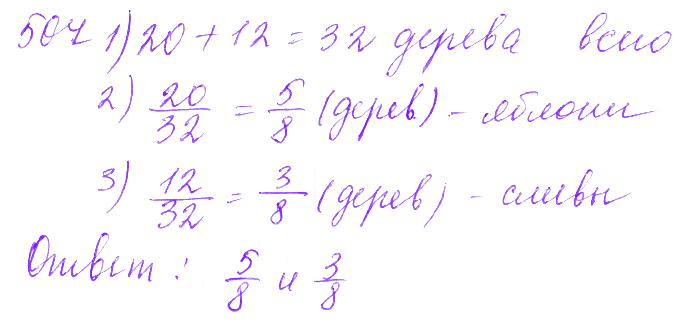 507 1) 20 + 12 = 32 дерева всего
2) 20/32 = 5/8 (дерев) - яблони
3) 12/32 = 3/8 (дерев) - сливы
Ответ: 5/8 и 3/8